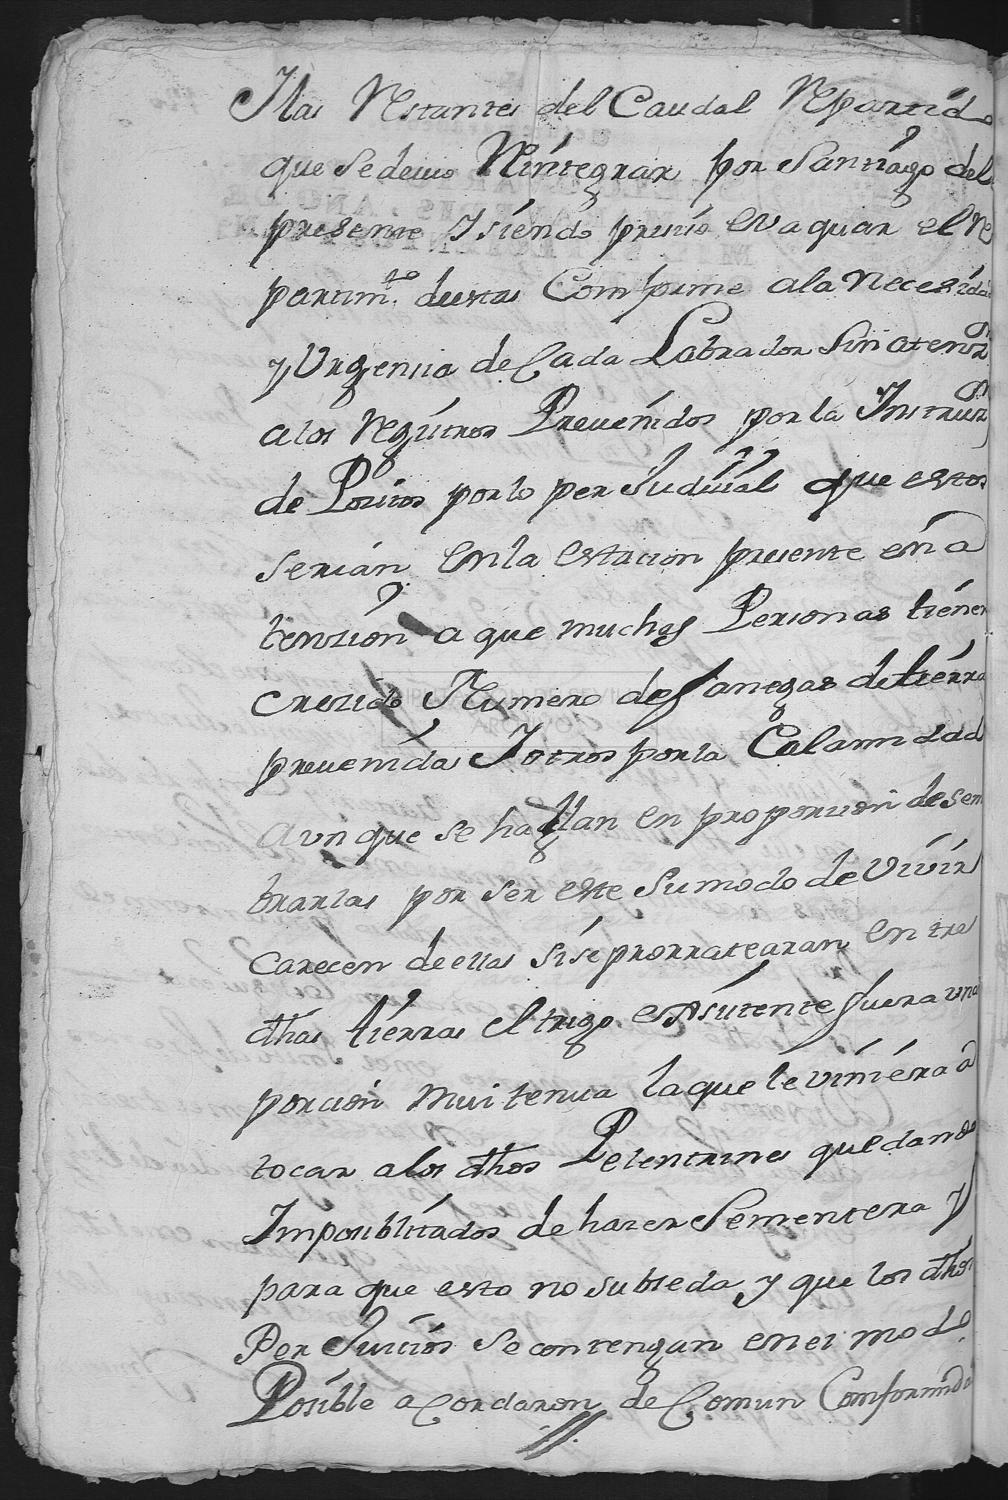 Ylas Restantes del Caudal Repartido
que se devio Rintegrar por Santiago del
presente Y siendo presiso evaquar el Re
partim.to destas Comforme ala necesida
y Urgensia de Cada Labrador Sin atenzn
alos Regístros Prevenidos por la Instruzn
de Positos por lo perJudicial que estos
serian en la estacion presente en a
tenzion a que muchas Personas tienen
crezido Numero de fanegas de tierra
prevenida Y otros por la Calamidad
Aunque se hallan en proporcion de sem
brarlas por ser este su modo de Vivir
carecen de ellas si se prorratearan entre
dhas tierras el trigo existente fuera una
porcion mui tenua la que le viniera a
tocar alos dhos Pelentrines quedando
Imposiblitados de hazer Sementera y
para que esto no subseda y que los dhos
PerJuicios se contengan en el modo
Posible acordaron de Comun Conformida